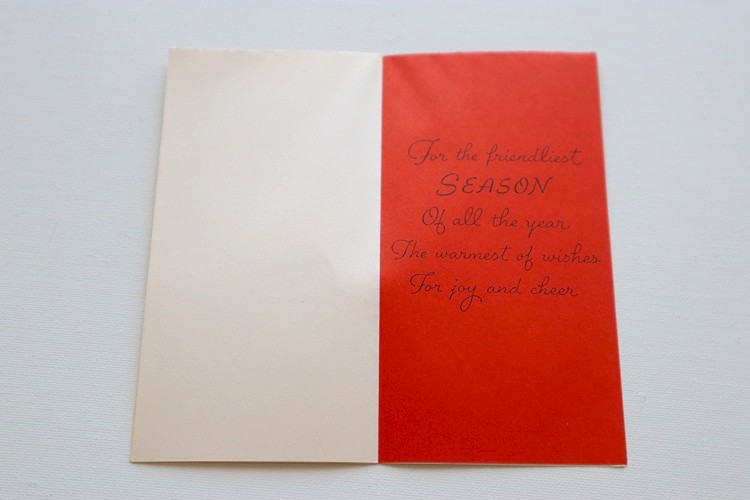 For the friendliest
SEASON
Of all the year
The warmest of wishes
For joy and cheer